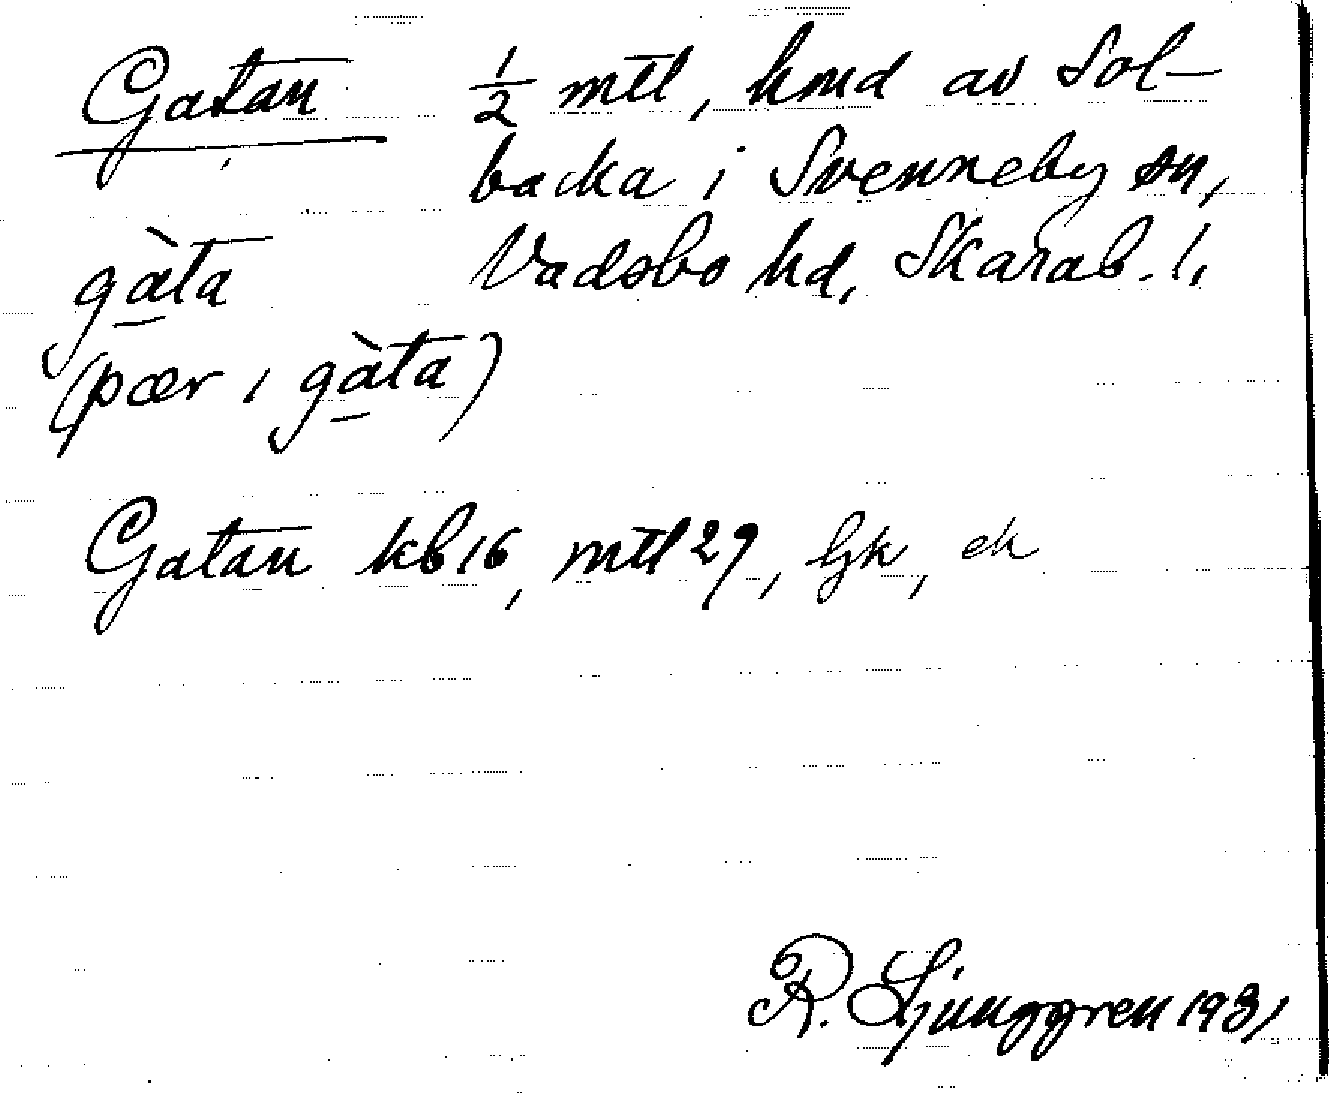 Gatan ½ mtl, hmd av Sol-
backa i Svenneby sn,
gàta Vadsbo hd, Skarab. l.
(pær i gàta)
Gatan kb 16, mtl 29, Gk, ek
R. Ljunggren 1931